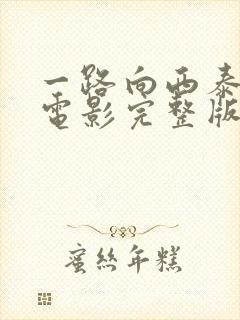 一路向西泰
电影完整版
蜜丝年糕